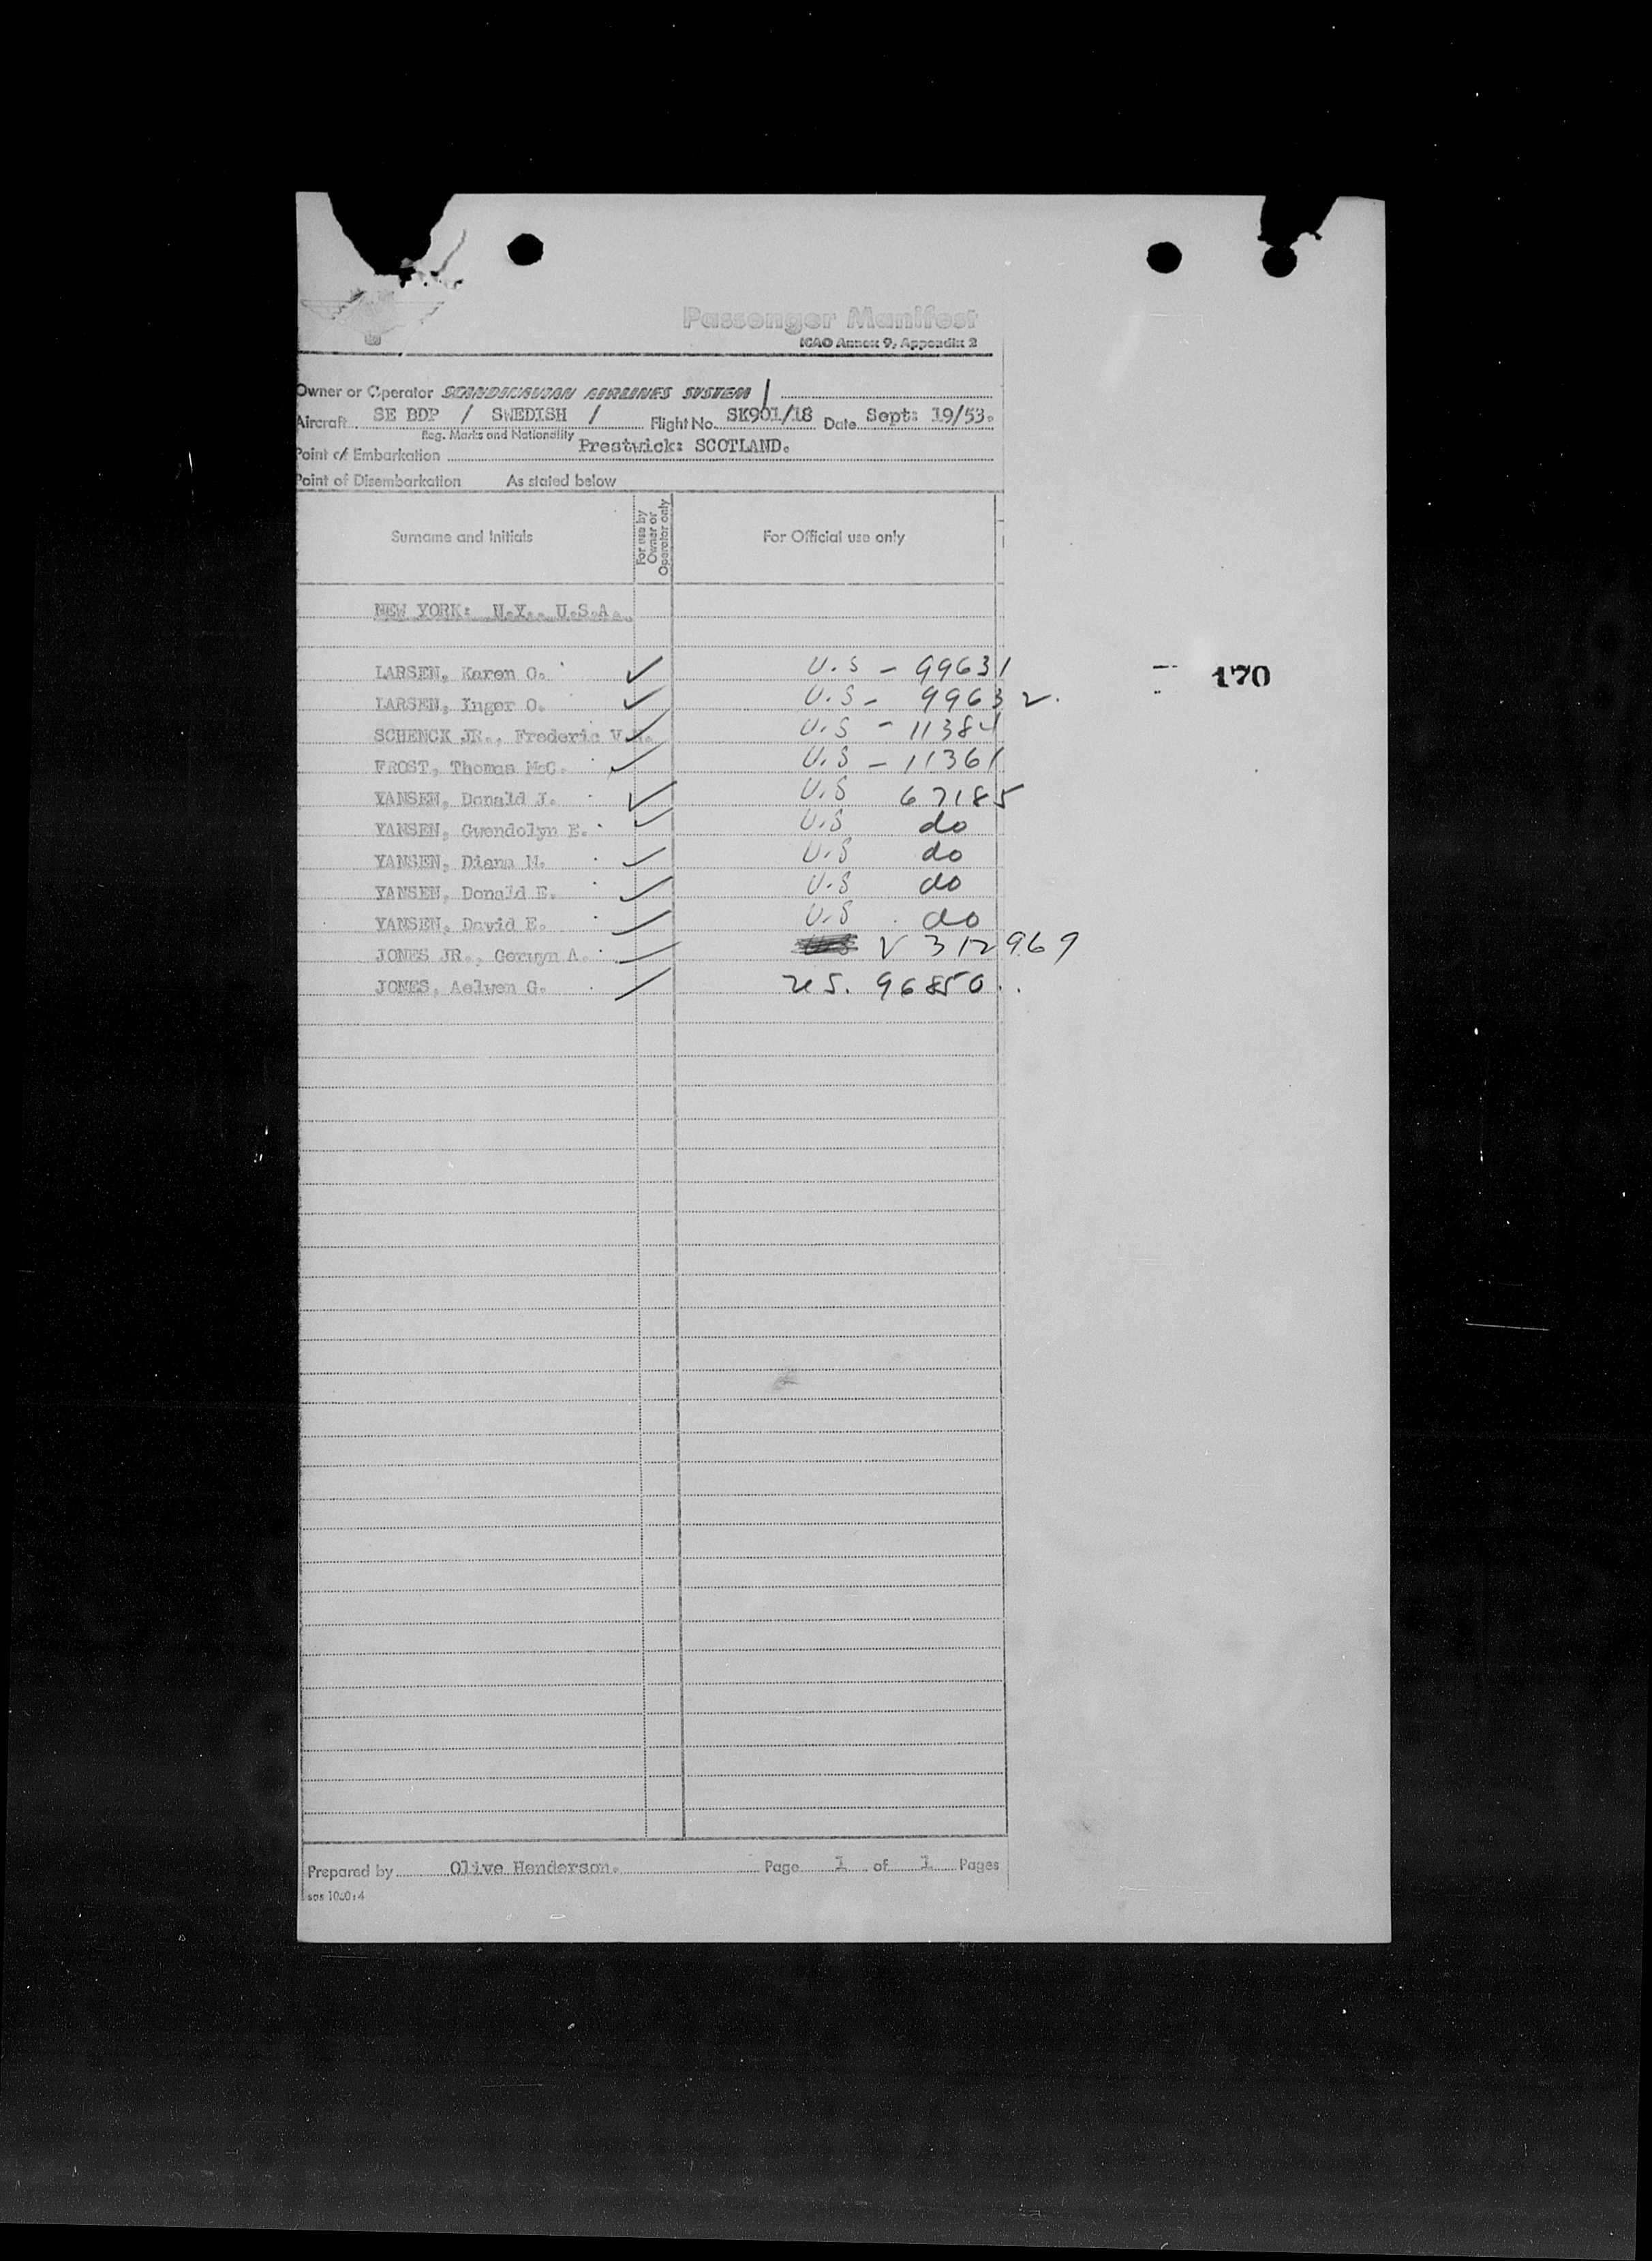 Passenger Manifest
ICAO Annex 9, Appendix 2
Owner or Operator SCANDINAVIAN AIRLINES SYSTEM /
Aircraft SE BDP / SWEDISH / Flight No. SK901/18 Date Sept: 19/53.
Reg. Marks and Nationality
Point of Embarkation Prestwick: SCOTLAND.
Point of Disembarkation As stated below
Surname and Initials For use by Owner or Operator only For Official use only
NEW YORK: N.Y.. U.S.A.
LARSEN, Karen O. ✓ U.S - 99631
170
LARSEN, Inger O. ✓ U.S - 99632.
SCHENCK JR., Frederic V. ✓ U.S - 11384
FROST, Thomas McC. ✓ U.S - 11361
YANSEN, Donald J. ✓ U.S 67185
YANSEN, Gwendolyn E. ✓ U.S do
YANSEN, Diana M. ✓ U.S do
YANSEN, Donald E. ✓ U.S do
YANSEN, David E. ✓ U.S do
JONES JR., Gerwyn A. ✓ V 312969
JONES, Aelwen G. ✓ US. 96850.
Prepared by Olive Henderson. Page 1 of 1 Pages